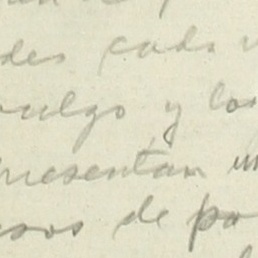 des cada
vulgo y los
presentan un
esos de pa